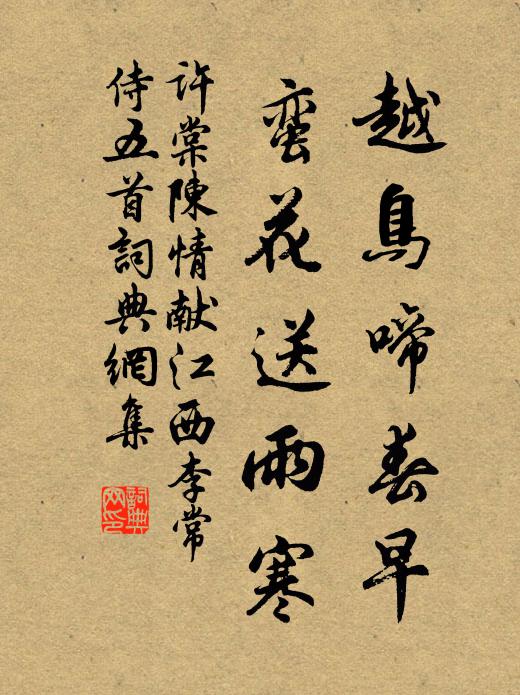 越鳥啼春早
蛮花送雨寒
許棠陳情献江西李常
侍五首詞典網集
詞典
网印